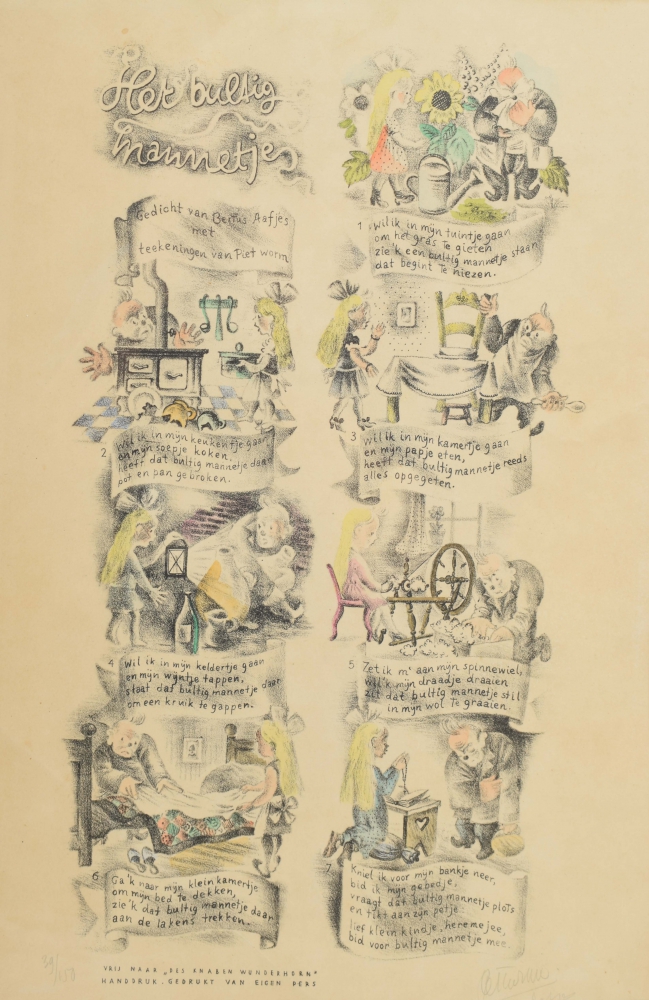 Het bultig
mannetje
Gedicht van Bertus Aafjes
met
teekeningen van Piet worm
1 Wil ik in mijn tuintje gaan
om het gras te gieten
zie'k een bultig mannetje staan
dat begint te niezen.
2. Wil ik in mijn keukentje gaan
en mijn soepje koken,
heeft dat bultig mannetje daar
pot en pan gebroken.
3 Wil ik in mijn kamertje gaan
en mijn papje eten,
heeft dat bultig mannetje reeds
alles opgegeten.
4 Wil ik in mijn keldertje gaan
en mijn wijntje tappen,
staat dat bultig mannetje daar
om een kruik te gappen.
5 Zet ik m' aan mijn spinnewiel,
wil'k mijn draadje draaien
zit dat bultig mannetje stil
in mijn wol te graaien.
6. Ga'k naar mijn klein kamertje
om mijn bed te dekken,
zie'k dat bultig mannetje daar
aan de lakens trekken.
7. Kniel ik voor mijn bankje neer,
bid ik mijn gebedje;
vraagt dat bultig mannetje plots
en tikt aan zijn petje:
lief klein kindje, heremejee,
bid voor bultig mannetje mee.
39/150
VRIJ NAAR „DES KNABEN WUNDERHORN"
HANDDRUK. GEDRUKT VAN EIGEN PERS